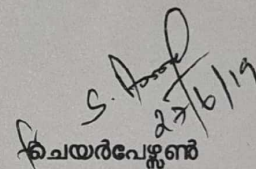 27/6/19
ചെയർപേഴ്സൺ